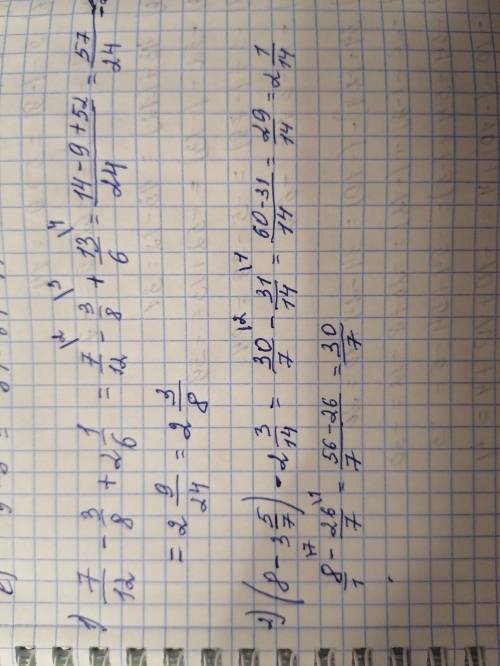 1) 7/12 - 3/8 + 2 1/6 = 7/12 \2 - 3/8 \3 + 13/6 \4 = (14 - 9 + 52)/24 = 57/24 =
= 2 9/24 = 2 3/8
2) (8 - 3 5/7) - 2 3/14 = 30/7 \2 - 31/14 \1 = (60 - 31)/14 = 29/14 = 2 1/14
8/1 \7 - 26/7 \1 = (56 - 26)/7 = 30/7